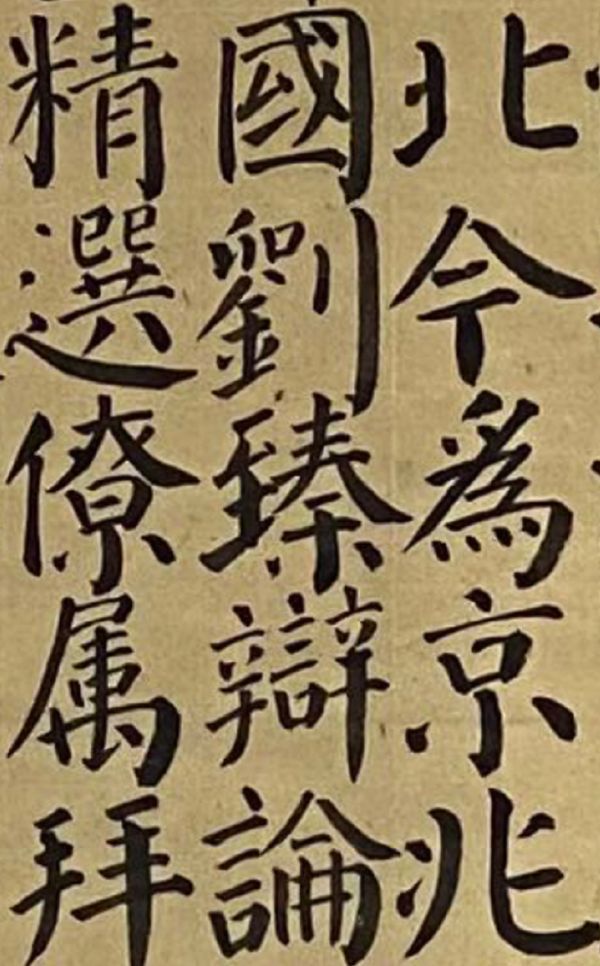 北今為京兆
國劉臻辯論
精選僚属拜